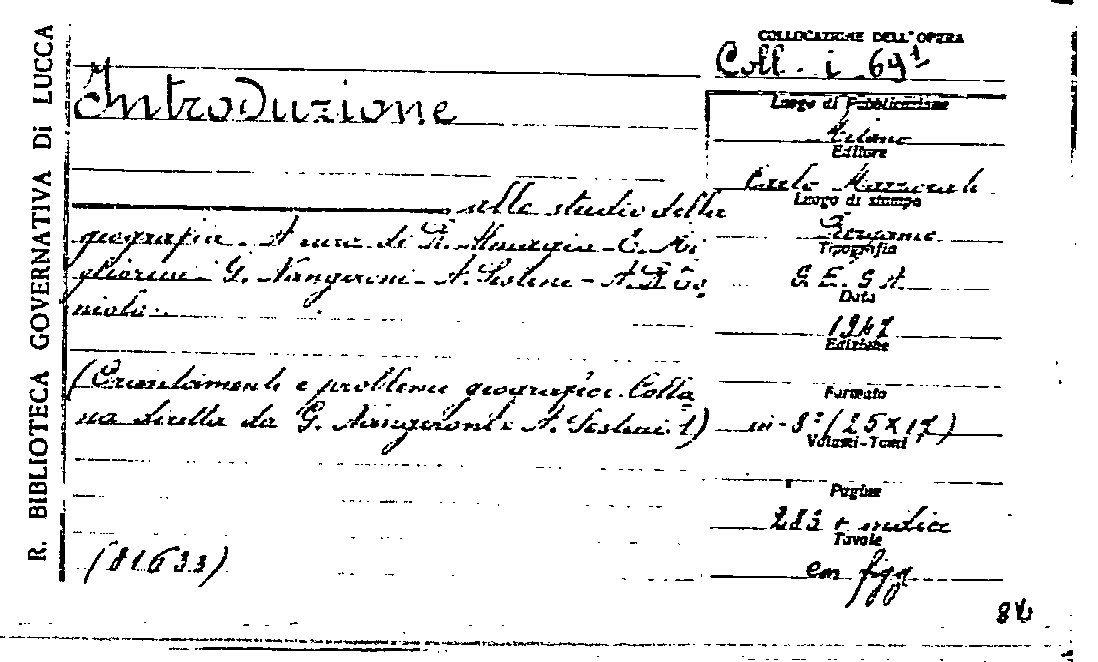 R. BIBLIOTECA GOVERNATIVA Di LUCCA
COLLOCAZIONE DELL'OPERA
Coll. i 69¹
Introduzione
Luogo di Pubblicazione
Milano
Editore
Carlo Marzorati
Luogo di stampa
alla studio della
geografia. A cura di R. E. Mi
Tipografia
gliorini - G. Nangeroni - A. Sestini - A. R. To
G. E. S. A.
Data
niolo.
1947
Edizione
(Orientamenti e problemi geografici. Colla
Formato
na diretta da G. Nangeroni e A. Sestini. 1)
in-8° (25x17)
Volumi-Tomi
Pagine
283 + indice
Tavole
(81633)
con figg